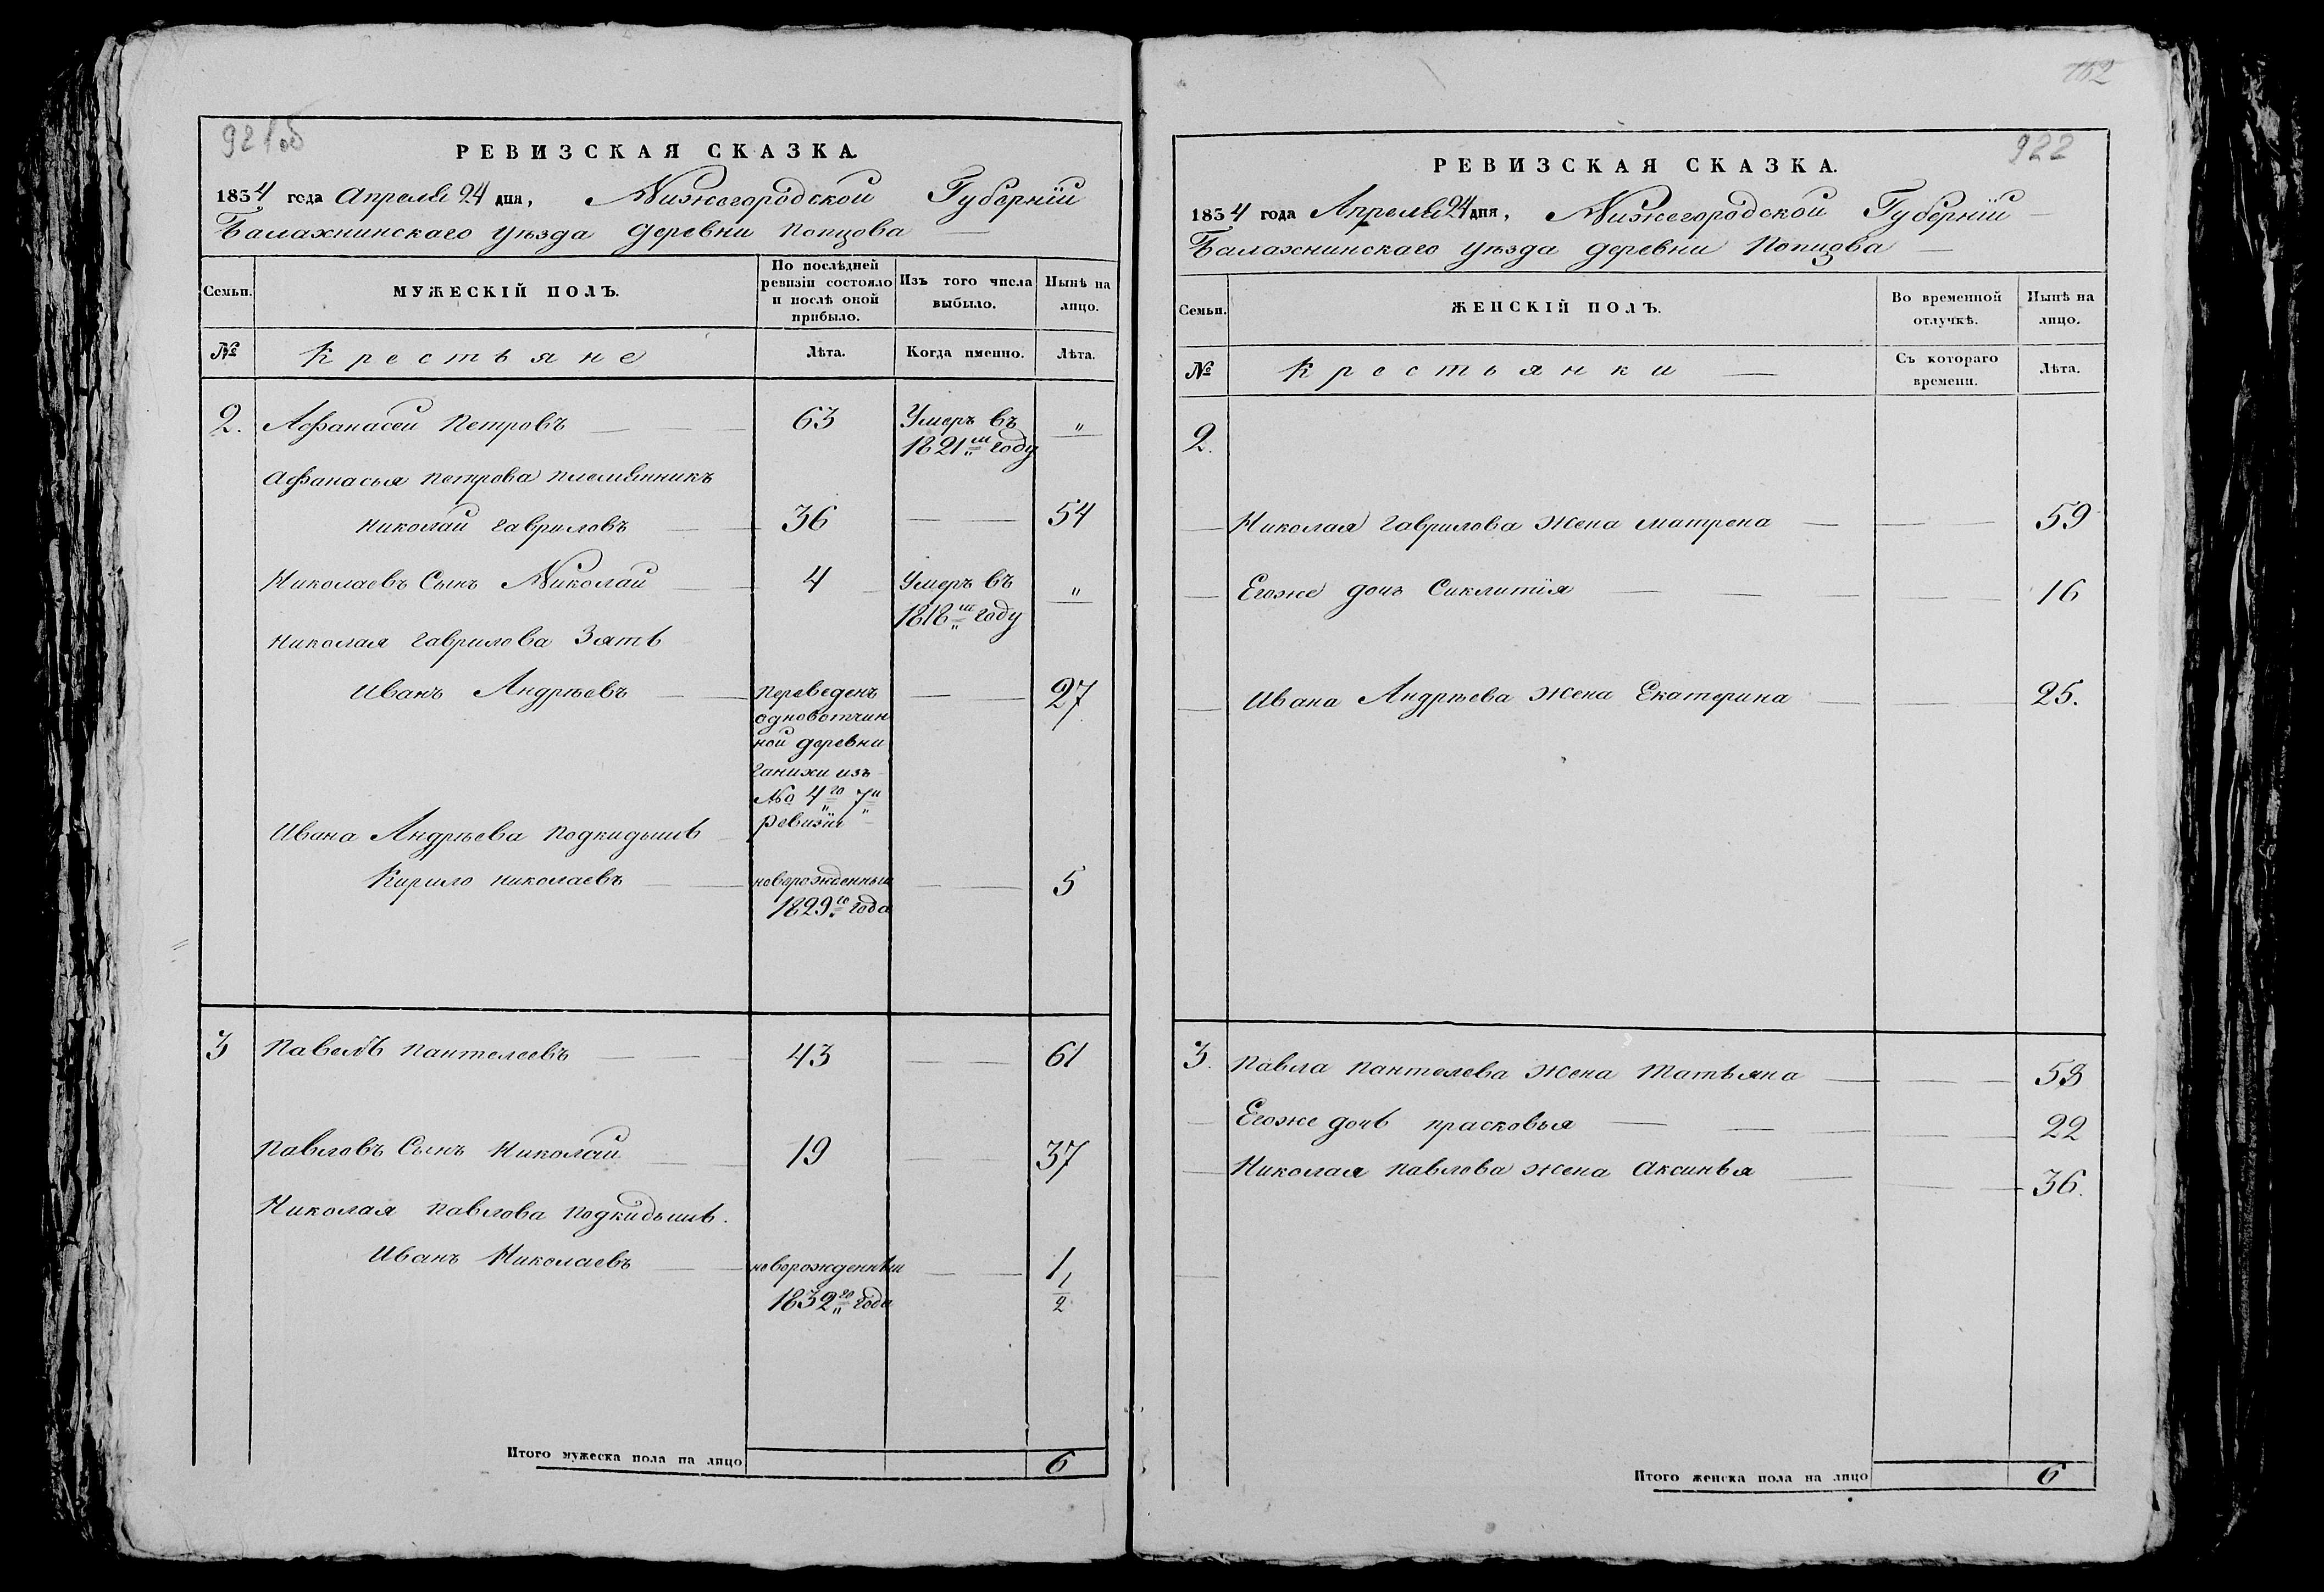 921об
РЕВИЗСКАЯ СКАЗКА.
1834 года Апреля 24 дня, Нижегородской Губерніи
Балахнинскаго уѣзда деревни Попцова
Семьи.
МУЖЕСКІЙ ПОЛЪ.
По послѣдней ревизіи состояло и послѣ оной прибыло.
Изъ того числа выбыло.
Нынѣ на лицо.
№
Крестьяне
Лѣта.
Когда именно.
Лѣта.
2. Афанасей Петровъ 63 Умеръ въ "
1821м году
Афанасья Петрова племянникъ
Николай Гавриловъ 36 54
Николаевъ Сынъ Николай 4 Умеръ въ "
1818м году
Николая Гаврилова Зять
Иванъ Андрѣевъ Переведенъ 27
одновотчин
ной деревни
Ганихи изъ
№ 4го 7й
ревизіи
Ивана Андрѣева подкидышь
Кирило Николаевъ новорожденный 5
1829го года
3 Павелъ Пантелеевъ 43 61
Павловъ Сынъ Николай 19 37
Николая Павлова подкидышь.
Иванъ Николаевъ новорожденный 1 1/2
1832го года
Итого мужеска пола на лицо 6
162
922
РЕВИЗСКАЯ СКАЗКА.
1834 года Апреля 24 дня, Нижегородской Губерніи
Балахнинскаго уѣзда деревни Попцова
Семьи.
ЖЕНСКІЙ ПОЛЪ.
Во временной отлучкѣ.
Нынѣ на лицо.
№
Крестьянки
Съ котораго времени.
Лѣта.
2.
Николая Гаврилова жена Матрена 59
Егоже дочь Сиклитія 16
Ивана Андрѣева жена Екатерина 25.
3. Павла Пантелева жена Татьяна 58
Егоже дочь Прасковья 22
Николая Павлова жена Аксинья 36.
Итого женска пола на лицо 6